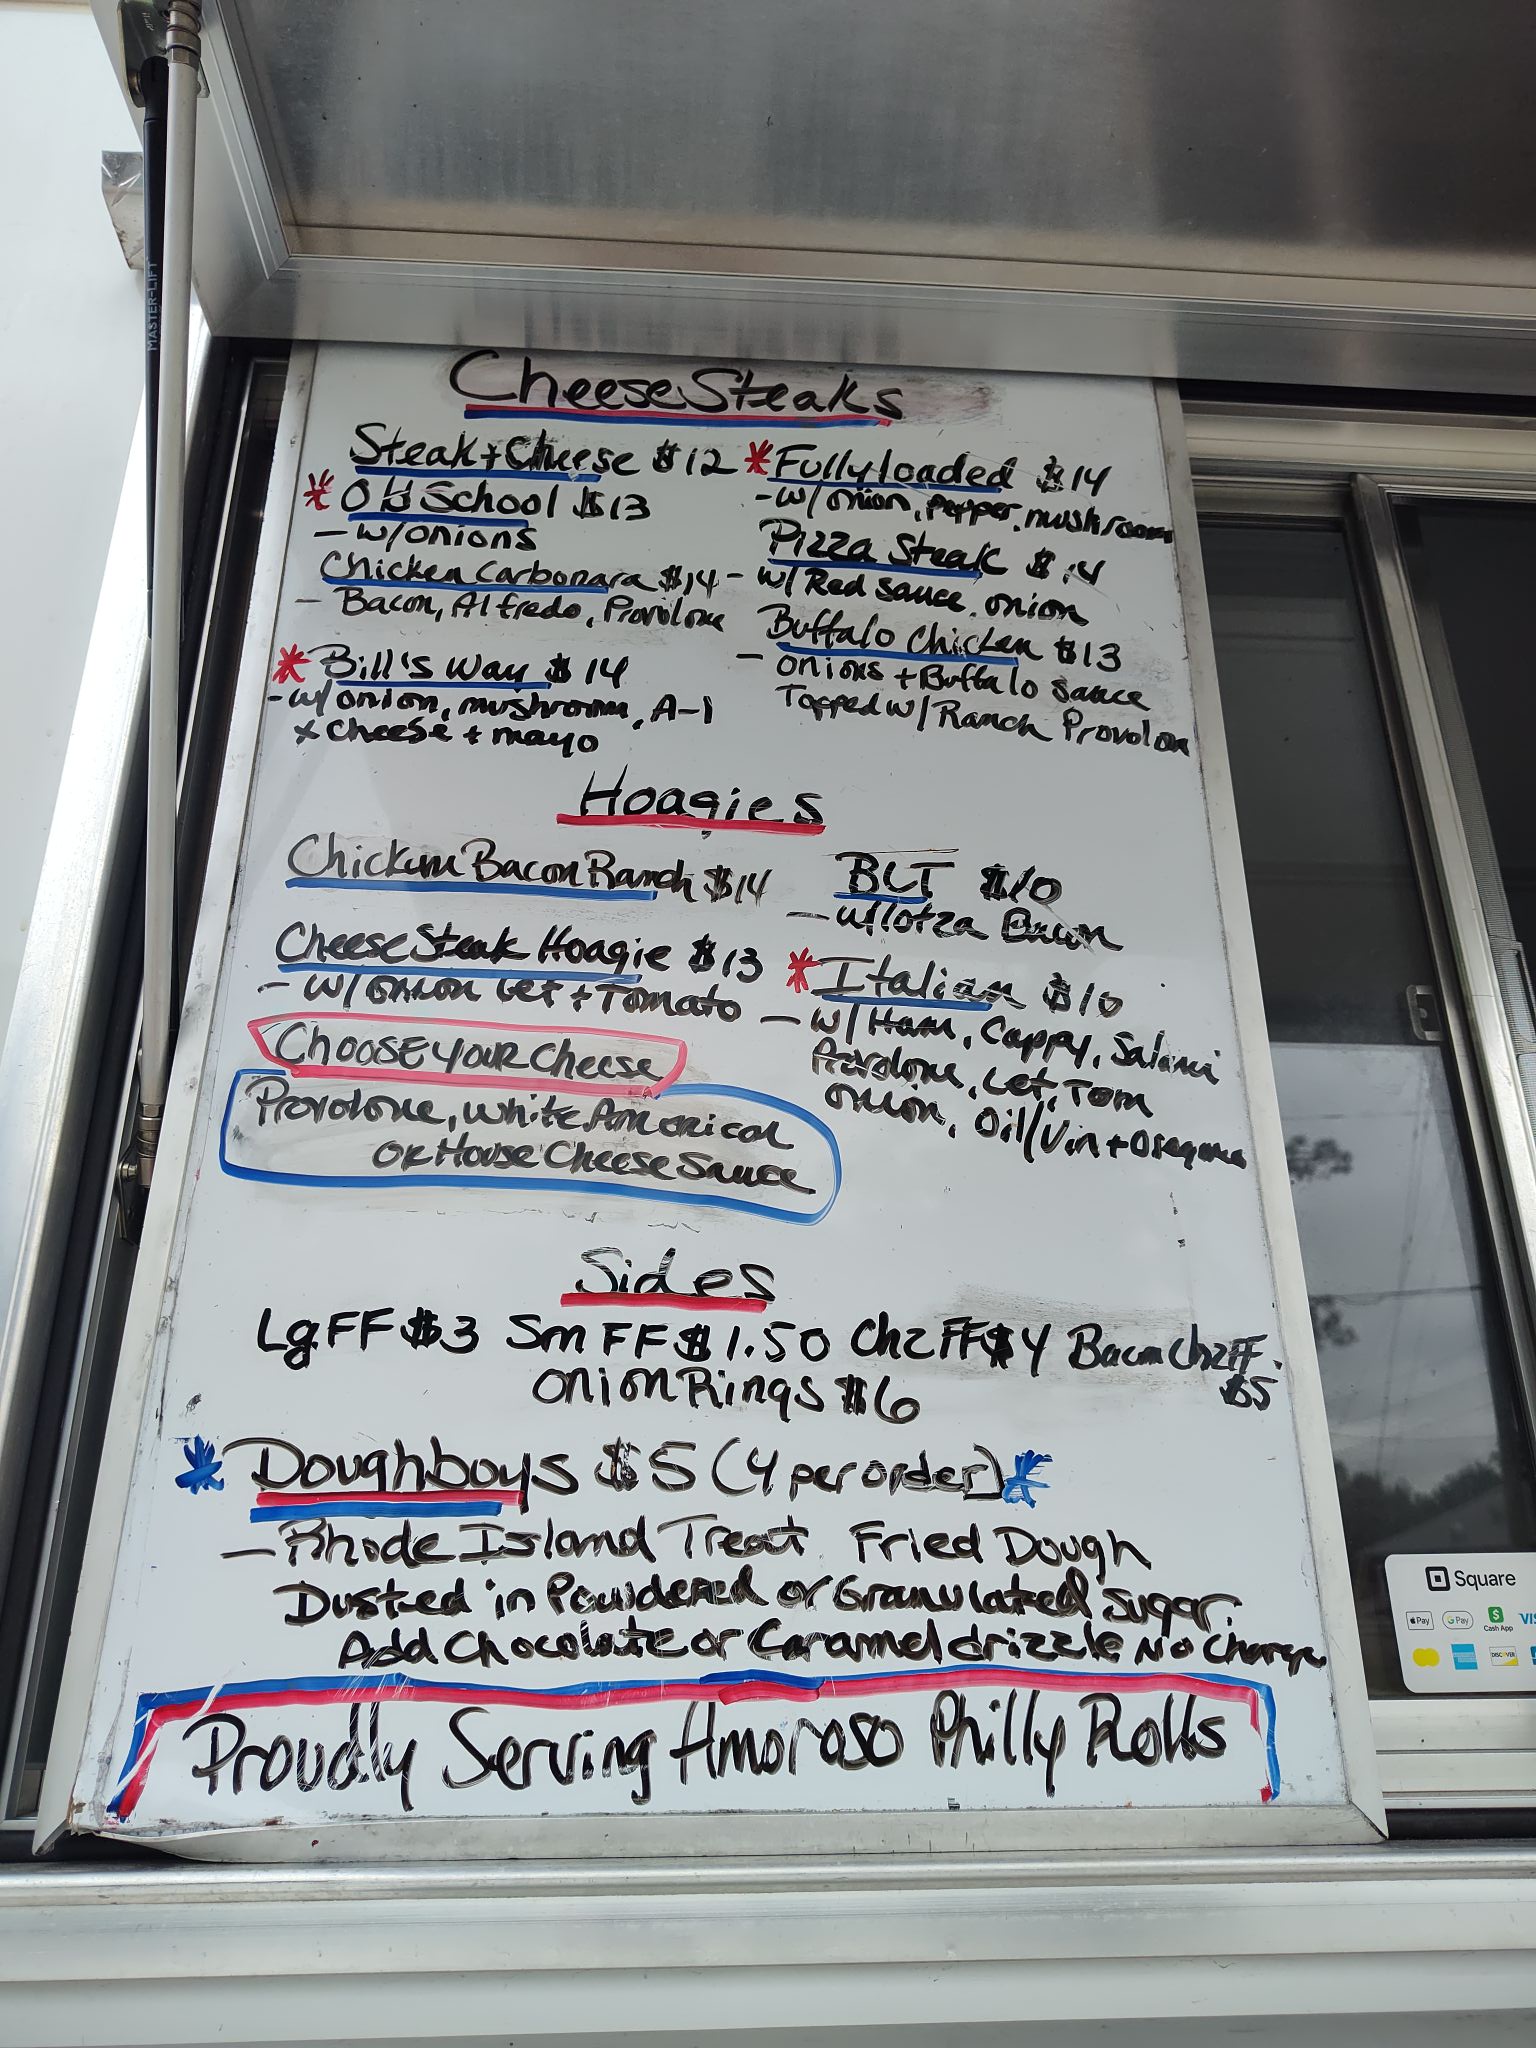 MASTER-LIFT
CheeseSteaks
Steak + Cheese $12
* Old School $13
- w/onions
Chicken Carbonara $14
- Bacon, Alfredo, Provolone
* Bill's Way $14
- w/onion, mushroom, A-1
x cheese + mayo
* Fully loaded $14
- w/onion, pepper, mushroom
Pizza Steak $14
- w/ Red Sauce, onion
Buffalo Chicken $13
- onions + Buffalo Sauce
Topped w/ Ranch Provolone
Hoagies
Chicken Bacon Ranch $14
CheeseSteak Hoagie $13
- w/onion Let + Tomato
BLT $10
- w/lotza Bacon
* Italian $10
- w/ Ham, Cappy, Salami
Provolone, Let, Tom
onion, Oil/Vin + Oregano
Choose your Cheese
Provolone, White American
or House Cheese Sauce
Sides
Lg FF $3 Sm FF $1.50 Chz FF $4 Bacon Chz FF
$5
Onion Rings $6
* Doughboys $5 (4 per order) *
- Rhode Island Treat Fried Dough
Dusted in Powdered or Granulated Sugar.
Add Chocolate or Caramel drizzle No Charge
Proudly Serving Amoroso Philly Rolls
Square
Pay G Pay Cash App VIS
DISCOVER